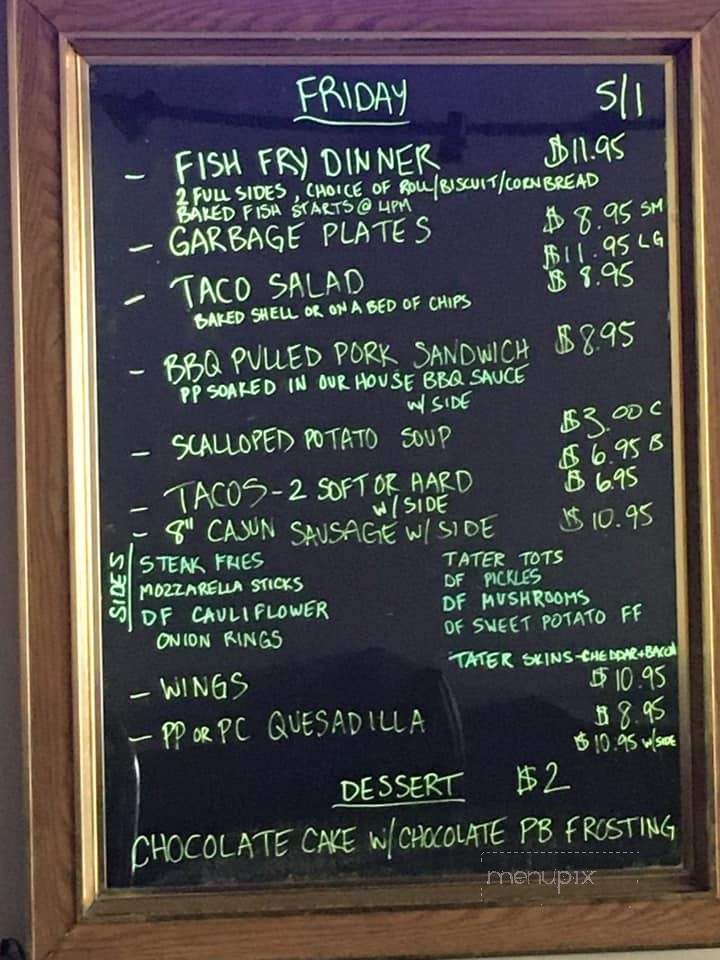 FRIDAY 5/1
- FISH FRY DINNER $11.95
2 FULL SIDES, CHOICE OF ROLL/BISCUIT/CORNBREAD
BAKED FISH STARTS @ 4PM
- GARBAGE PLATES $8.95 SM
$11.95 LG
- TACO SALAD $8.95
BAKED SHELL OR ON A BED OF CHIPS
- BBQ PULLED PORK SANDWICH $8.95
PP SOAKED IN OUR HOUSE BBQ SAUCE
W/ SIDE
- SCALLOPED POTATO SOUP $3.00 C
$6.95 B
- TACOS - 2 SOFT OR HARD $6.95
W/ SIDE
- 8" CAJUN SAUSAGE W/ SIDE $10.95
SIDES
STEAK FRIES
MOZZARELLA STICKS
DF CAULIFLOWER
ONION RINGS
TATER TOTS
DF PICKLES
DF MUSHROOMS
DF SWEET POTATO FF
TATER SKINS-CHEDDAR+BACON
- WINGS $10.95
- PP OR PC QUESADILLA $8.95
$10.95 W/SIDE
DESSERT $2
CHOCOLATE CAKE W/ CHOCOLATE PB FROSTING
menupix